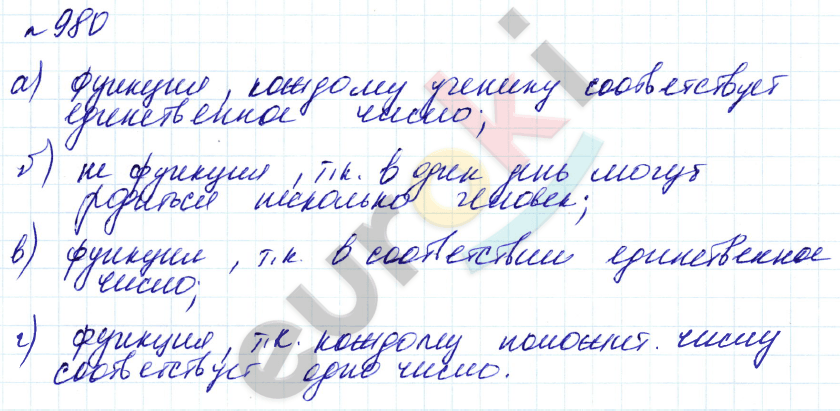 № 980
а) функция, каждому ученику соответствует
единственное число;
б) не функция, т.к. в один день могут
родиться несколько человек;
в) функция, т.к. в соответствии единственное
число;
г) функция, т.к. каждому положит. числу
соответствует одно число.
euroki